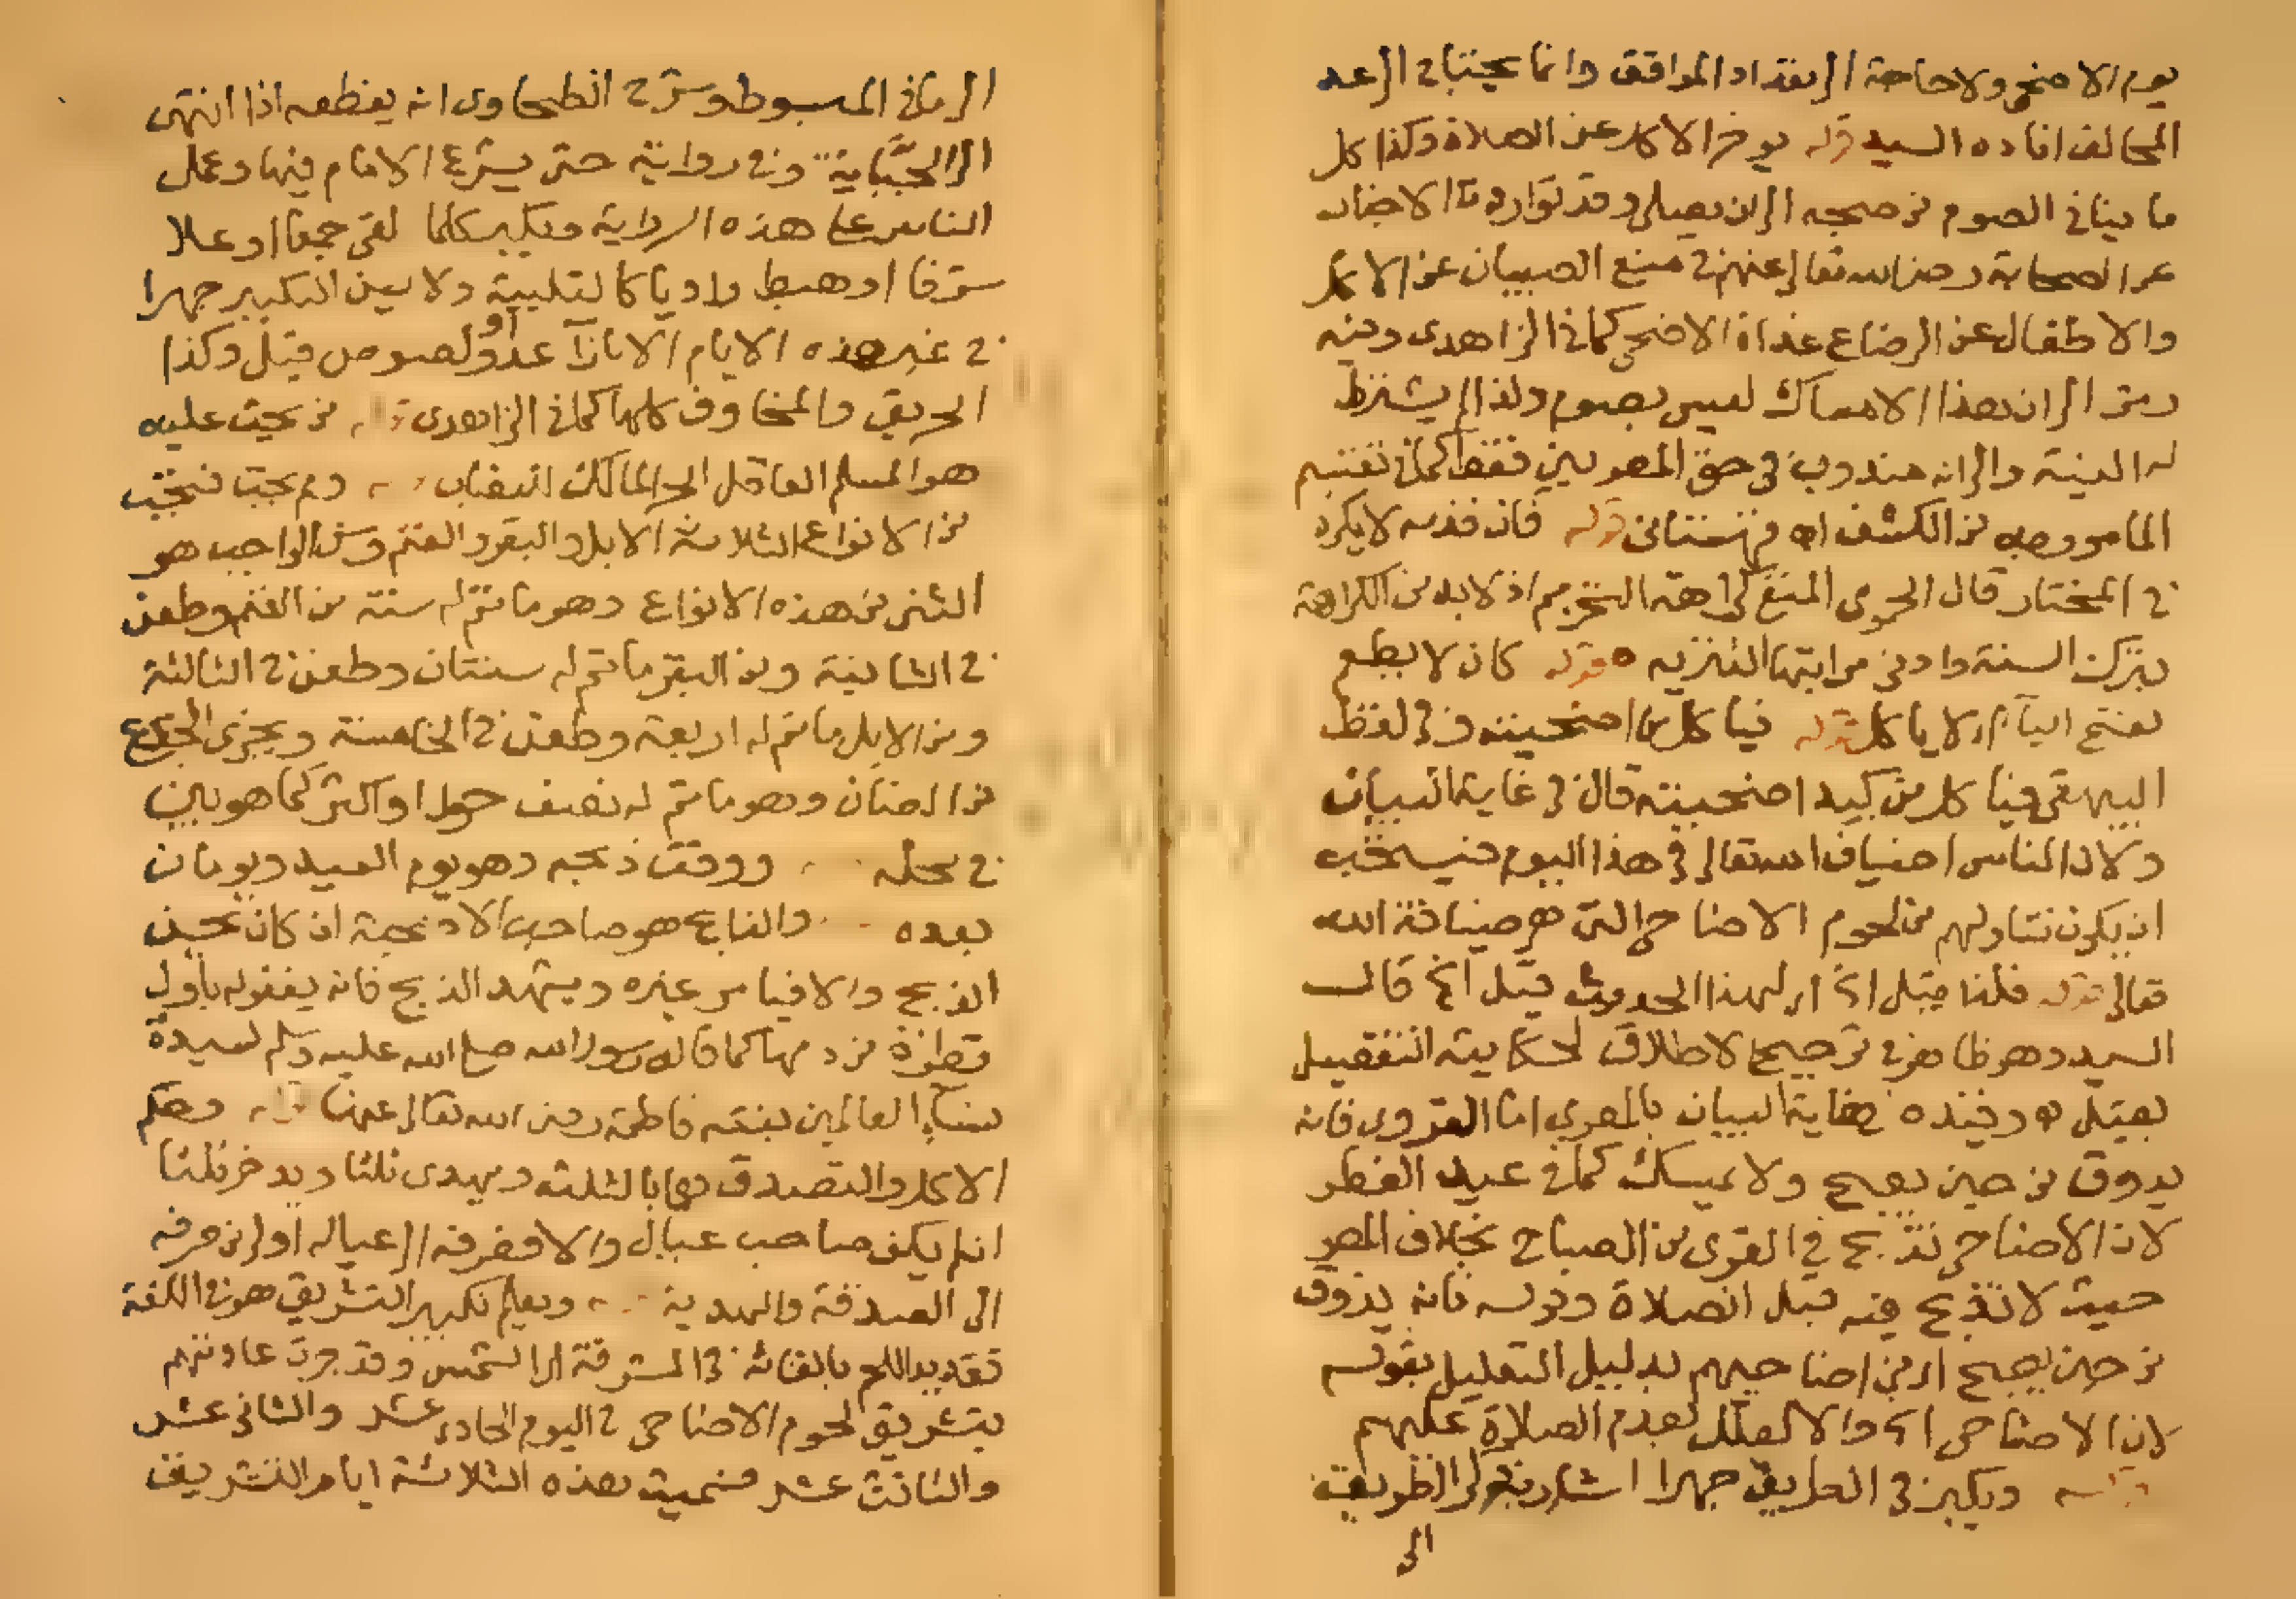 يوم الاضحى ولا حاجة الى تعداد الموافق وانما يحتاج الى عد
المخالف افاده السيد قوله يوخر الاكل عن الصلاة وكذا كل
ما ينافي الصوم من صبحه الى ان يصلى وقد تواردت الاخبار
عن الصحابة رضى الله تعالى عنهم في منع الصبيان عن الاكل
والاطفال عن الرضاع غداة الاضحى كما في الزاهدى وفيه
رمز الى ان هذا الامساك ليس بصوم ولذا لم يشترط
له النية والى انه مندوب في حق المصريين فقط كما في
المامور به من الكشف اه قهستانى قوله فان قدمه لا يكره
في المختار قال الحموى المنفى كراهة التحريم اذ لا بد من الكراهة
بترك السنة وادنى مراتبها التنزيه قوله كان لا يطعم
بفتح اليآء اى لا ياكل قوله فياكل من اضحيته وفي لفظ
البيهقى فياكل من كبد اضحيته قال في غاية البيان
ولان الناس اضياف الله تعالى في هذا اليوم فيستحب
ان يكون تناولهم من لحوم الاضاحى التى هى ضيافة الله
تعالى قوله فلذا قيل الخ اى لهذا الحديث قيل الخ قال
السيد وهو ظاهر في ترجيح الاطلاق لحكايته التفصيل
بقيل اه وقيده في غاية البيان بالمصرى اما القروى فانه
يذوق من حين يصبح ولا يمسك كما في عيد الفطر
لان الاضاحى تذبح في القرى من الصباح بخلاف المصر
حيث لا تذبح فيه قبل الصلاة وقوله فانه يذوق
من حين يصبح اى من اضاحيهم بدليل التعليل بقوله
لان الاضاحى الخ والا لعلل بعدم الصلاة عليهم
قوله ويكبر في الطريق جهرا اشار بقوله في الطريق
الى
الى ما في المبسوط وشرح الطحاوى انه يقطعه اذا انتهى
الى الجبَّانة وفي رواية حتى يشرع الامام فيها وعمل
الناس على هذه الرواية ويكبر كلما لقى جمعا او علا
شرفا او هبط واديا كالتلبية ولا يسن التكبير جهرا
في غير هذه الايام الا بازآء عدو او لصوص قيل وكذا
الحريق والمخاوف كلها كما في الزاهدى قوله من يجب عليه
هو المسلم العاقل الحر المالك للنصاب وم يجب فتجب
من الانواع الثلاثة الابل والبقر والغنم وسن الواجب هو
الثنى من هذه الانواع وهو ما تم له سنة من الغنم وطعن
في الثانية ومن البقر ما تم له سنتان وطعن في الثالثة
ومن الابل ما تم له اربعة وطعن في الخامسة ويجزى الجذع
من الضان وهو ما تم له نصف حول او اكثر كما هو بين
في محله ووقت ذبحه وهو يوم العيد ويومان
بعده والذابح هو صاحب الاضحية ان كان يحسن
الذبح والا فيامر غيره ويشهد الذبح فانه يغفر له باول
قطرة من دمها كما قاله رسول الله صلى الله عليه وسلم لسيدة
نسآء العالمين بنته فاطمة رضى الله تعالى عنها قوله وحكم
الاكل والتصدق بها بالثلث ويهدى ثلثا ويدخر ثلثا
ان لم يكن صاحب عيال والا فصرفه الى عياله اولى من صرفه
الى الصدقة والهدية ويعلم تكبير التشريق هو في اللغة
تقديد اللحم بالقائه في المشرقة اى الشمس وقد جرت عادتهم
بتشريق لحوم الاضاحى في اليوم الحادى عشر والثانى عشر
والثالث عشر فسميت هذه الثلاثة ايام التشريق